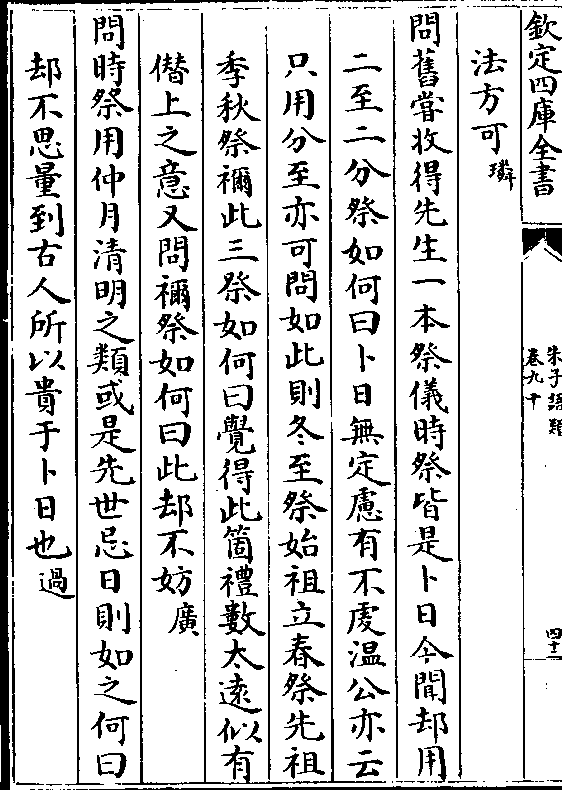 欽定四庫全書
朱子語類
卷九十
四十二
法方可璘
問舊嘗收得先生一本祭儀時祭皆是卜日今聞却用
二至二分祭如何曰卜日無定慮有不虔温公亦云
只用分至亦可問如此則冬至祭始祖立春祭先祖
季秋祭禰此三祭如何曰覺得此箇禮數太逺似有
僭上之意又問禰祭如何曰此却不妨廣
問時祭用仲月清明之類或是先世忌日則如之何曰
却不思量到古人所以貴于卜日也過